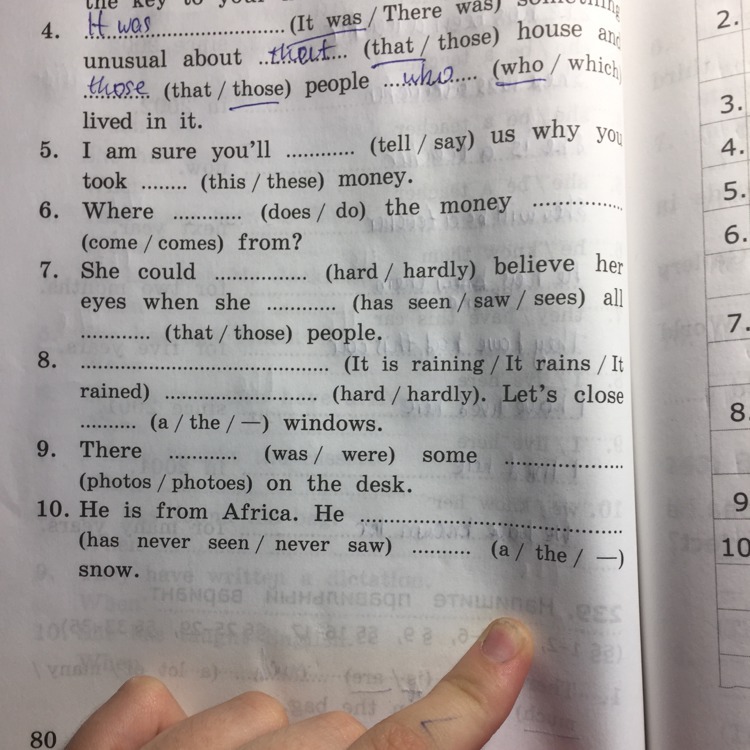 the key to your
4. It was ........................ (It was / There was) something
unusual about ..that.... (that / those) house and
those (that / those) people ...who.... (who / which)
lived in it.
5. I am sure you'll ........... (tell / say) us why you
took ........ (this / these) money.
6. Where ........... (does / do) the money ...............
(come / comes) from?
7. She could ............... (hard / hardly) believe her
eyes when she ............ (has seen / saw / sees) all
............ (that / those) people.
8. ........................................... (It is raining / It rains / It
rained) .......................... (hard / hardly). Let's close
.......... (a / the / —) windows.
9. There ............ (was / were) some ....................
(photos / photoes) on the desk.
10. He is from Africa. He ..............................................
(has never seen / never saw) .......... (a / the / —)
snow.
80
2.
3.
4.
5.
6.
7.
8.
9
10